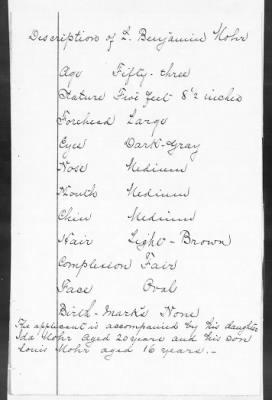 Description of L. Benjamin Mohr
Age Fifty-three
Stature Five feet 8 1/2 inches
Forehead Large
Eyes Dark-Gray
Nose Medium
Mouth Medium
Chin Medium
Hair Light-Brown
Complexion Fair
Face Oval
Birth-marks None
The applicant is accompanied by his daughter
Ida Mohr aged 20 years and his son
Louis Mohr aged 16 years.-